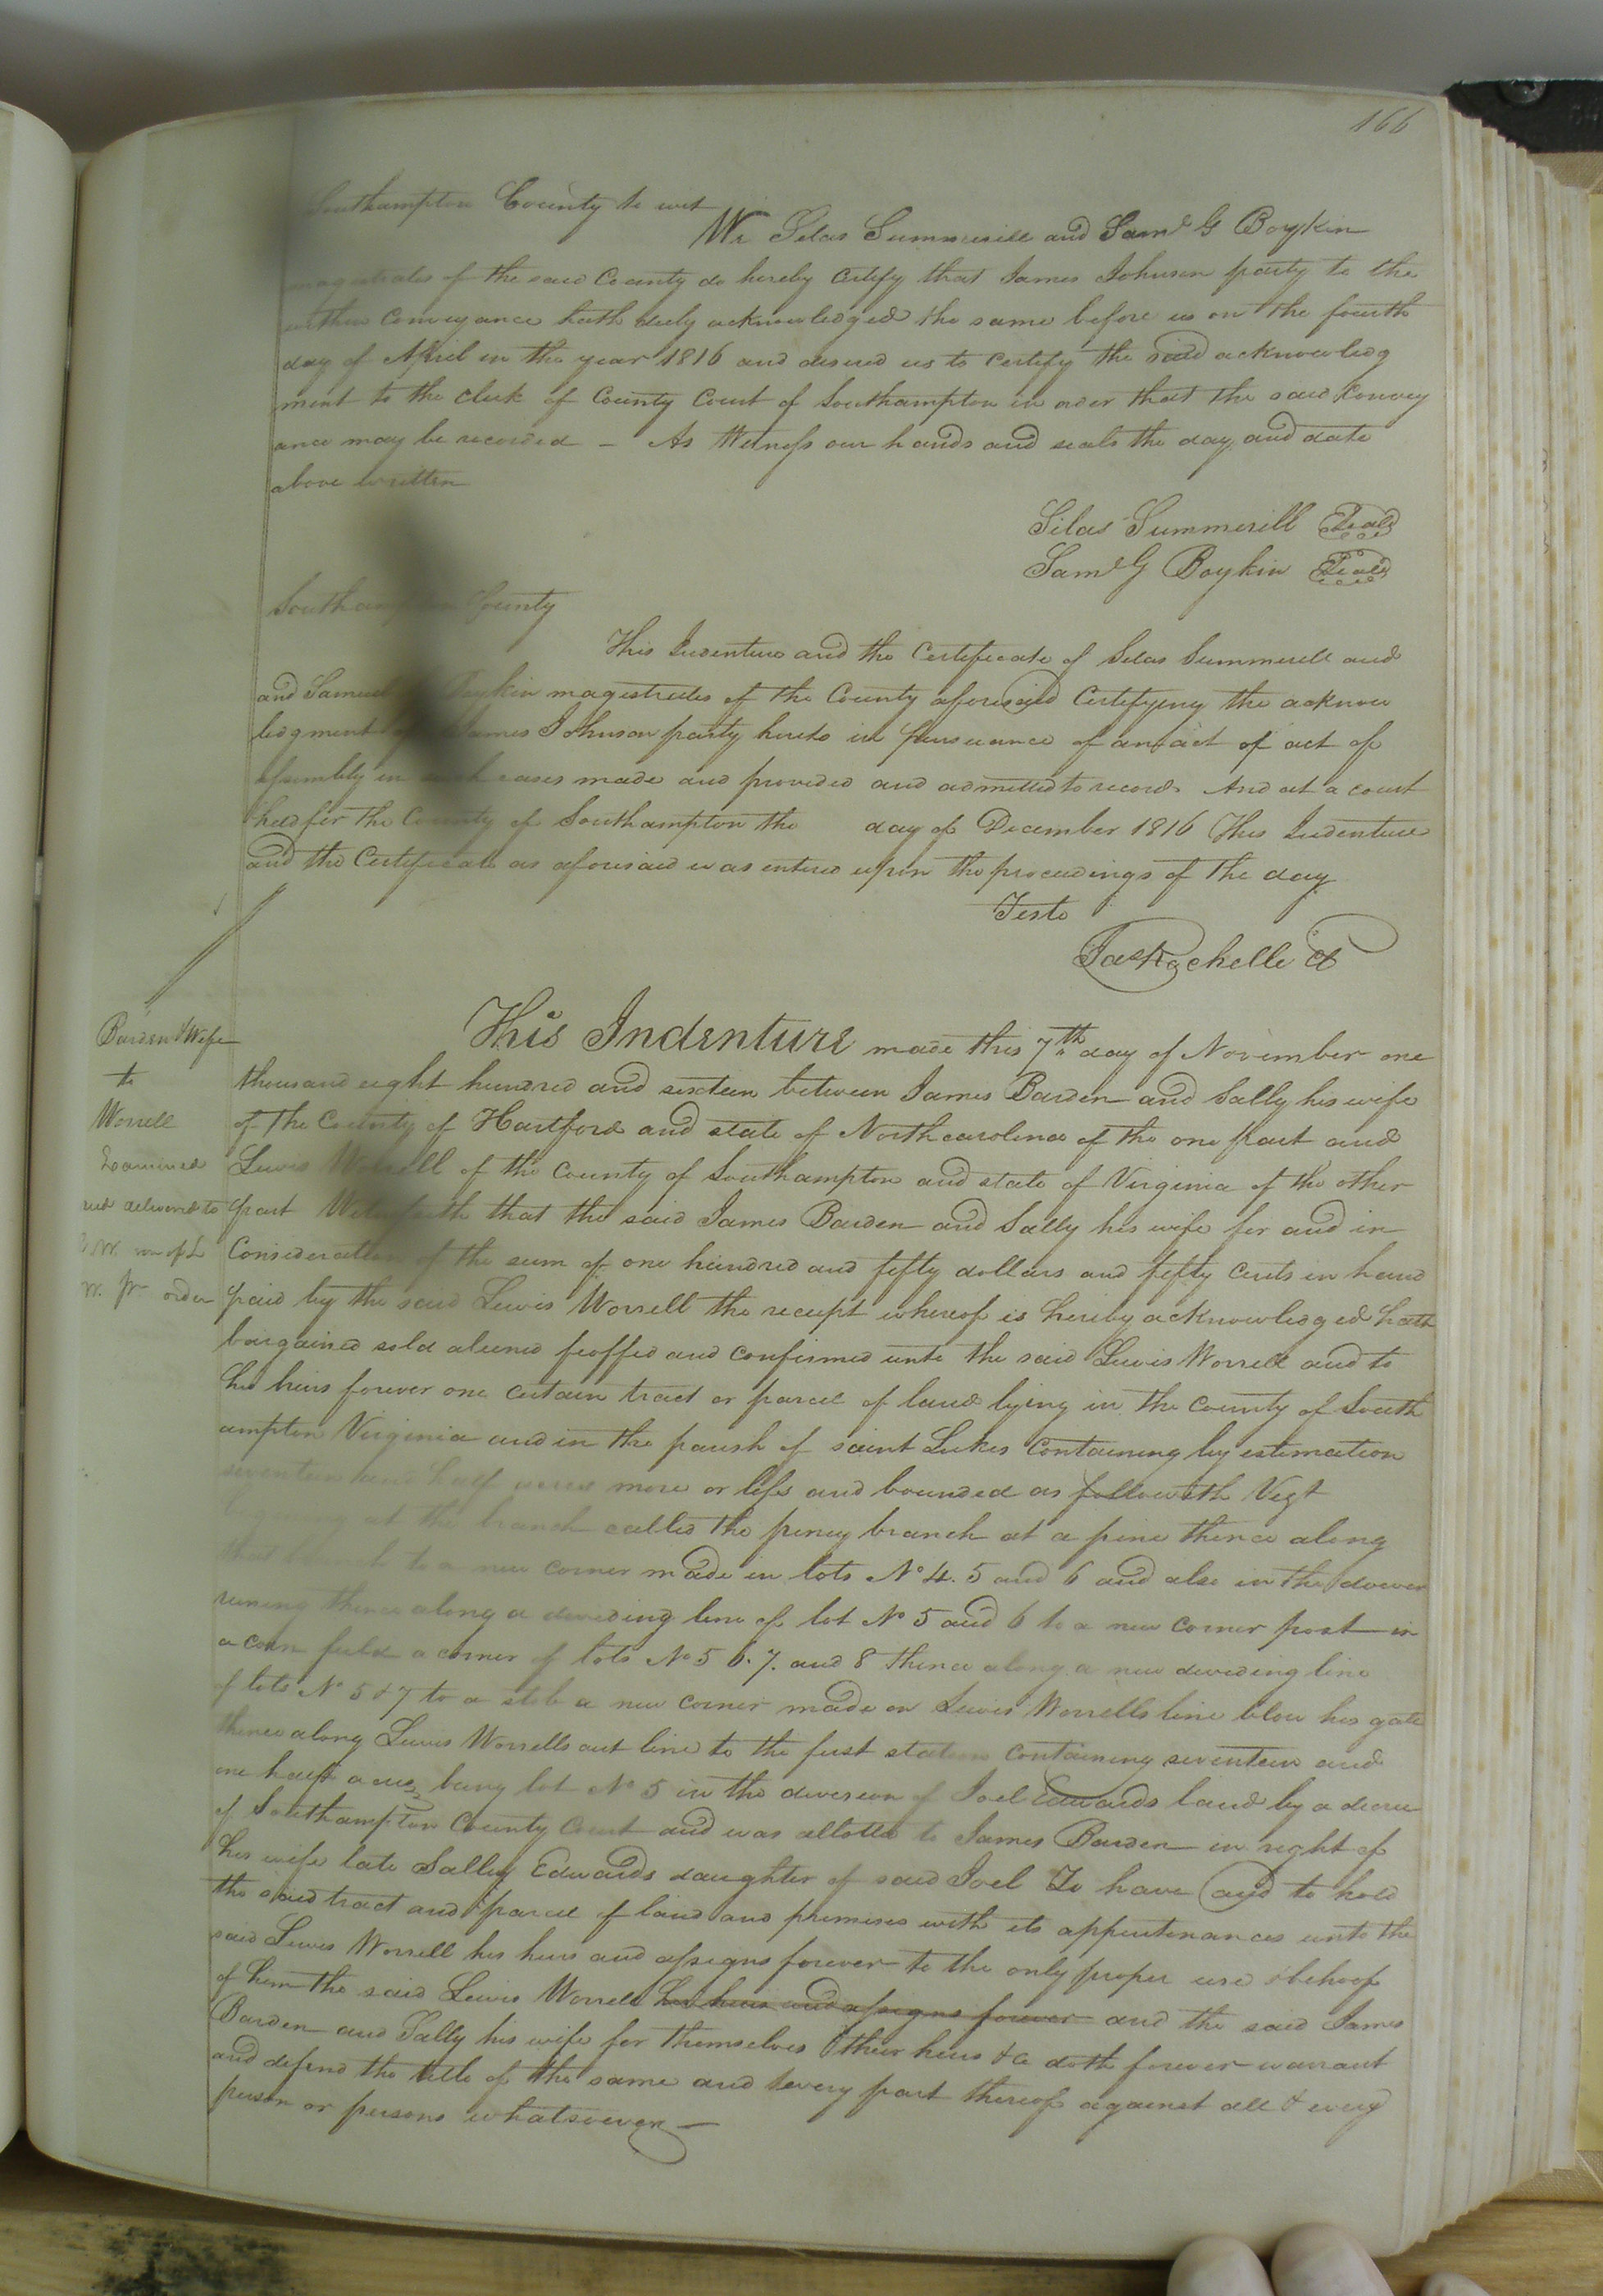 166
Southampton County to wit
We Silas Summerill and Saml G Boykin
magistrates of the said County do hereby Certify that James Johnson party to the
within Conveyance hath duly acknowledged the same before us on the fourth
day of April in the year 1816 and desired us to Certify the said acknowledg
ment to the clerk of County Court of Southampton in oder that the said Convey
ance may be recorded – As Witness our hands and seals the day and date
above written
Silas Summerill Seal
Saml G Boykin Seal
Southampton County
This Indenture and the Certificate of Silas Summerill and
and Samuel Boykin magistrates of the County aforesaid Certifying the acknow
ledgment of James Johnson party hereto in pursuance of an act of act of
assembly in such cases made and provided and admitted to record. And at a court
held for the County of Southampton the day of December 1816 This Indenture
and the Certificate as aforesaid was entered upon the proceedings of the day
Teste
Jas Rochelle Cl
Barden & Wife
to
Worrell
Examined
and delivered to
W. son of L
W. pr order
This Indenture made this 7th day of November one
thousand eight hundred and sixteen between James Barden and Sally his wife
of the County of Hartford and state of Northcarolina of the one part and
Lewis Worrell of the County of Southampton and state of Virginia of the other
part Witnesseth that the said James Barden and Sally his wife for and in
Consideration of the sum of one hundred and fifty dollars and fifty cents in hand
paid by the said Lewis Worrell the receipt whereof is hereby acknowledged hath
bargained sold aliened feoffed and confirmed unto the said Lewis Worrell and to
his heirs forever one certain tract or parcel of land lying in the County of South
ampton Virginia and in the parish of saint Lukes Containing by estimation
seventeen and half acres more or less and bounded as followeth Vizt
begining at the branch called the piney branch at a pine thence along
that branch to a new corner made in lots No 4. 5 and 6 and also in the dower
runing thence along a deviding line of lot No 5 and 6 to a new corner post in
a corn field a corner of lots No 5 6. 7. and 8 thence along a new deviding line
of lots No 5 & 7 to a stob a new corner made on Lewis Worrells line blow his gate
thence along Lewis Worrells out line to the first station Containing seventeen and
one half acres being lot No 5 in the division of Joel Edwards land by a decree
of Southampton County Court and was allotted to James Barden in right of
his wife late Salley Edwards daughter of said Joel To have and to hold
the said tract and parcel of land and premises with its appurtenances unto the
said Lewis Worrell his heirs and assigns forever to the only proper use & behoof
of him the said Lewis Worrell his heirs and assigns forever and the said James
Barden and Sally his wife for themselves & their heirs &c doth forever warrant
and defend the title of the same and every part thereof against all & every
person or persons whatsoever —